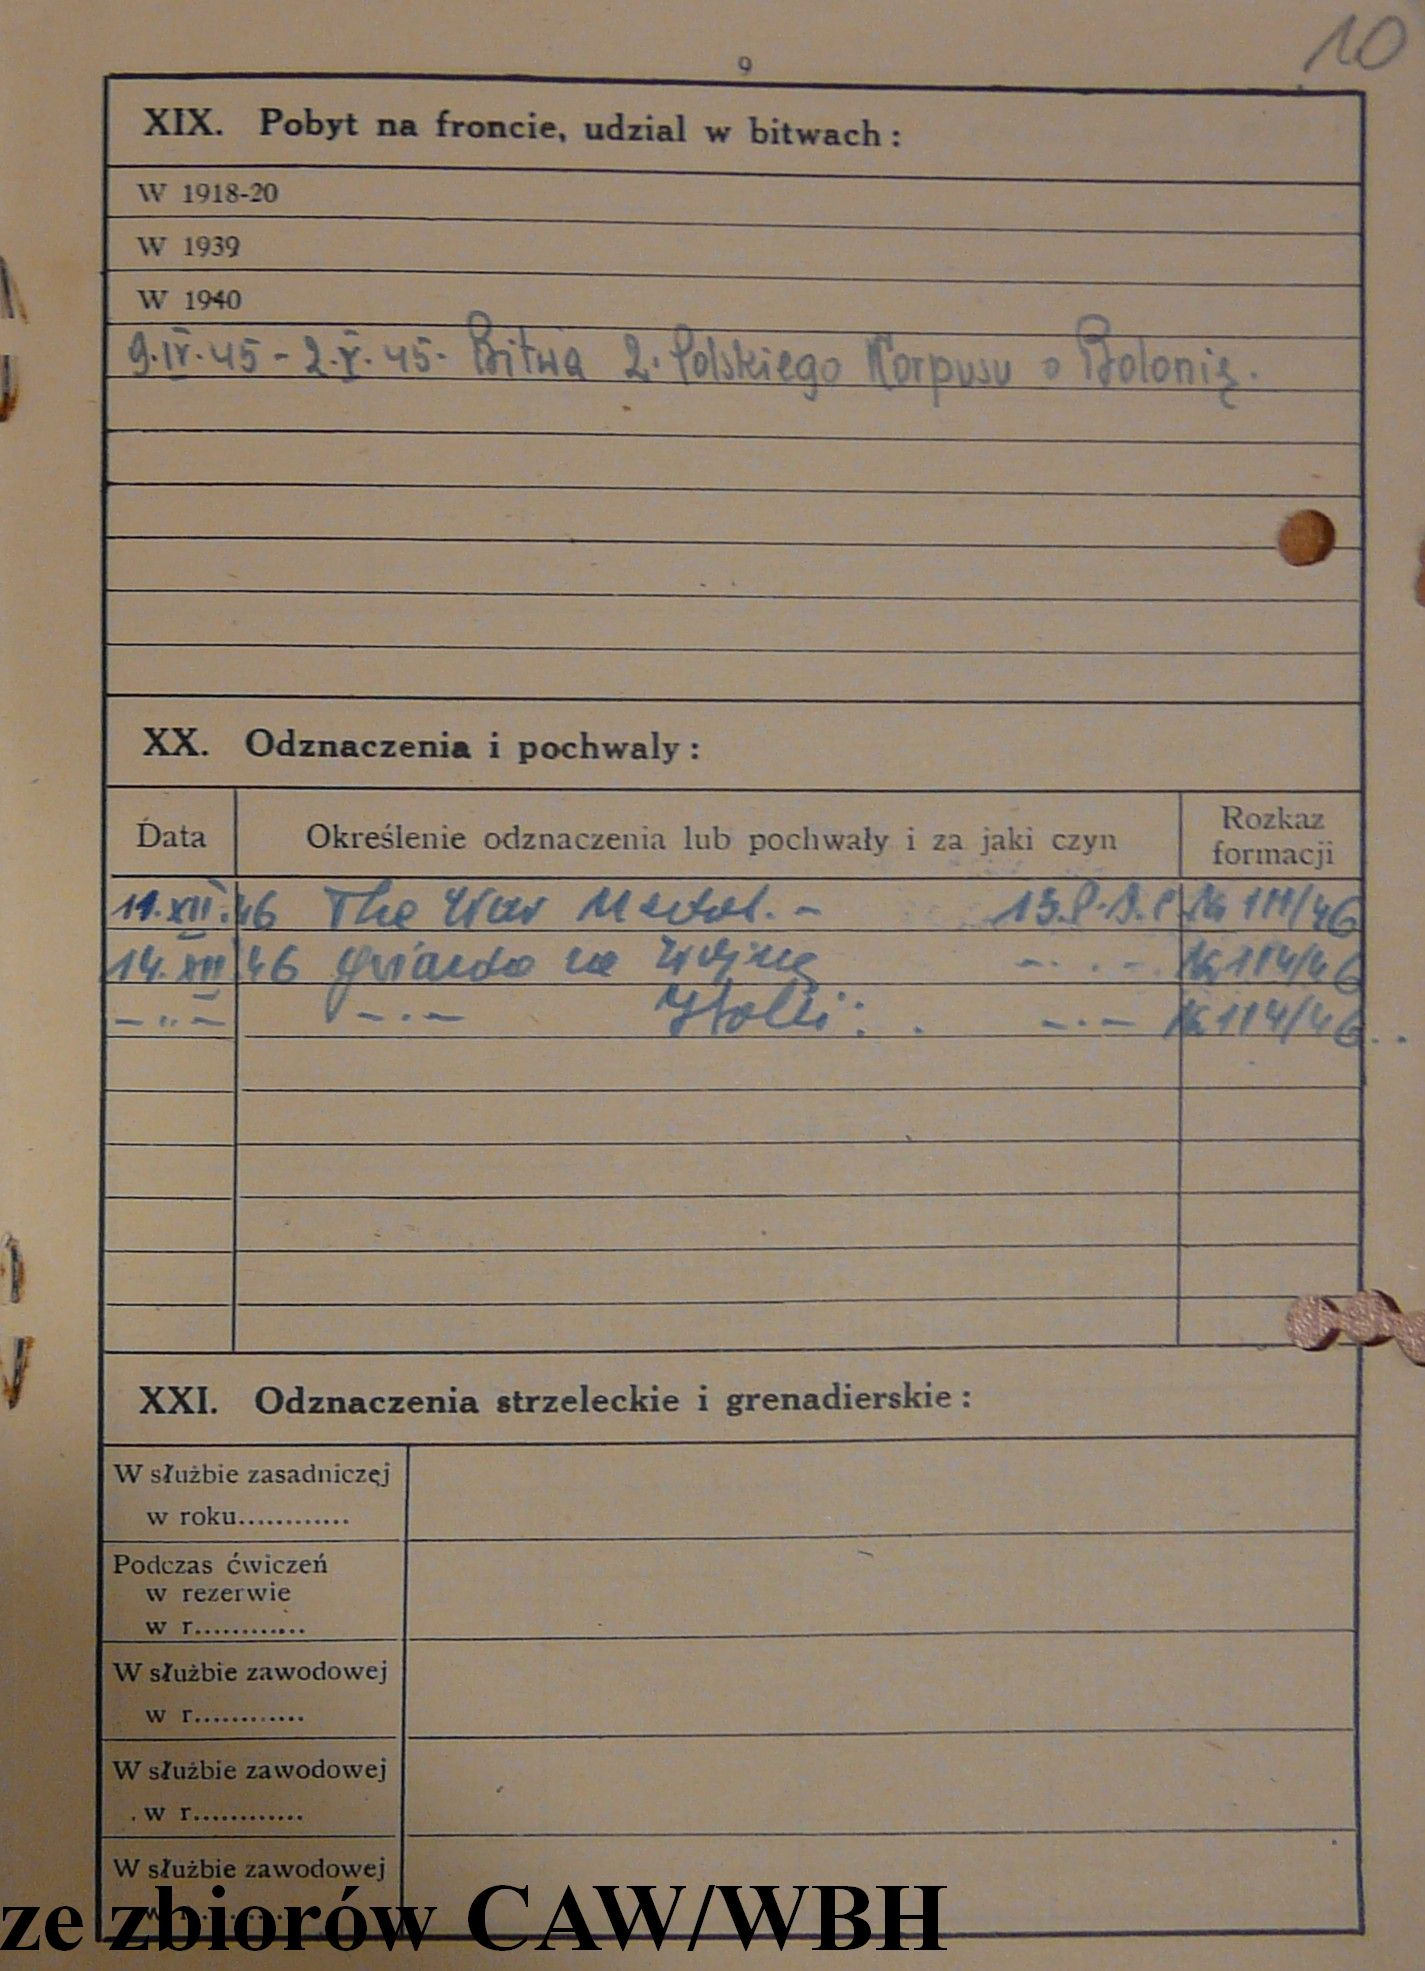 10
9
XIX. Pobyt na froncie, udzial w bitwach :
W 1918-20
W 1939
W 1940
9.IV.45 - 2.V.45. Bitwa 2. Polskiego Korpusu o Bolonię.
XX. Odznaczenia i pochwaly :
Data Określenie odznaczenia lub pochwały i za jaki czyn Rozkaz formacji
11.XII.46 The War Medal. - 13. Nr 111/46
14.XII.46 Gwiazda za Wojnę - . - Nr 114/46
- „ - - . - Italii - . - Nr 114/46
XXI. Odznaczenia strzeleckie i grenadierskie :
W służbie zasadniczęj
w roku............
Podczas ćwiczeń
w rezerwie
w r............
W służbie zawodowej
w r............
W służbie zawodowej
w r............
W służbie zawodowej
ze zbiorów CAW/WBH